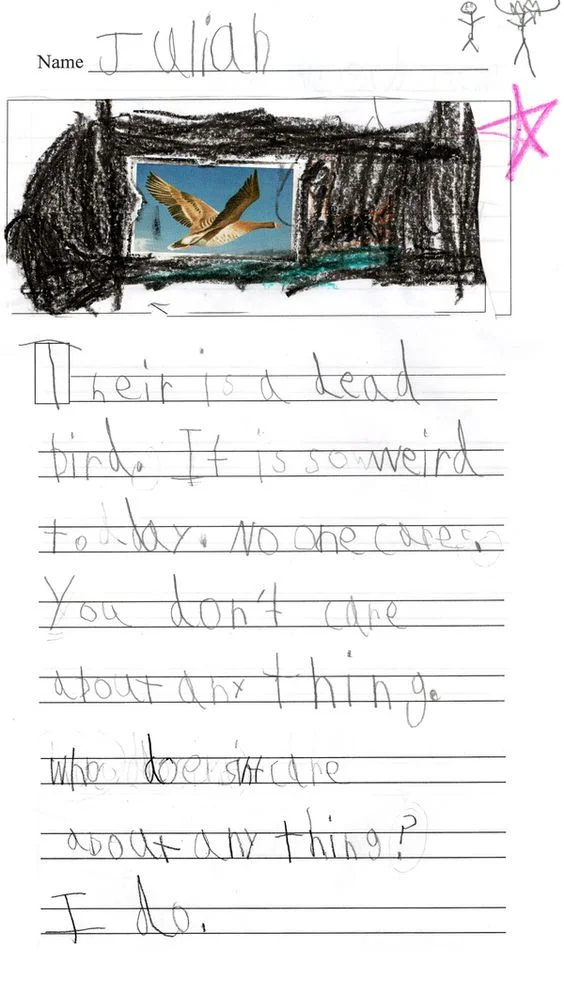 Name Juliah
Their is a dead
bird. It is so weird
today. No one cares.
You don't care
about any thing.
who doesn't care
about any thing?
I do.